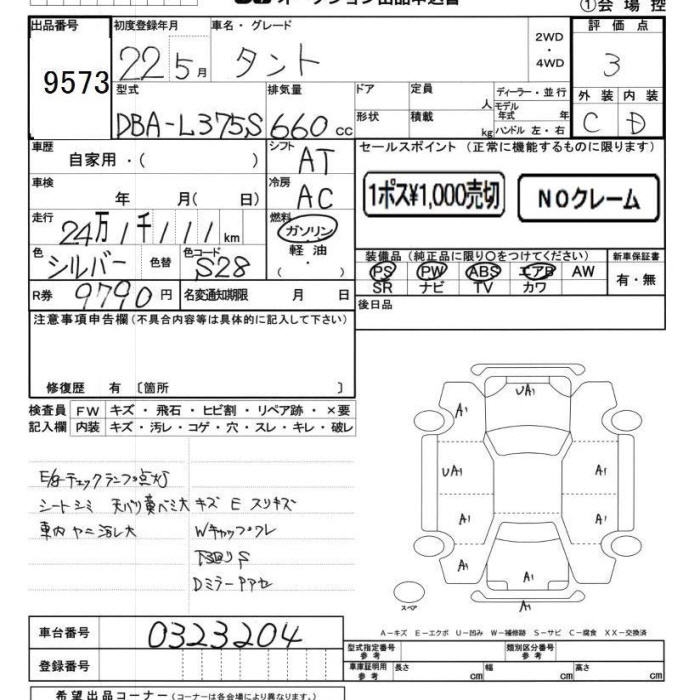 ①会場控
出品番号 初度登録年月 車名・グレード 2WD・4WD 評価点
9573 22 5月 タント 3
型式 排気量 ドア 定員 人 ディーラー・並行 外装 内装
DBA-L375S 660cc 形状 積載 kg モデル年式 年 ハンドル 左・右 C D
車歴 シフト セールスポイント(正常に機能するものに限ります)
自家用・( ) AT
車検 冷房 1ポス¥1,000売切 NOクレーム
年 月( 日) AC
走行 燃料
24万1千111km ガソリン・軽油・( )
色 色替 色コード 装備品(純正品に限り○をつけてください) 新車保証書
シルバー S28 PS PW ABS エアB AW 有・無
SR ナビ TV カワ
R券 9790円 名変通知期限 月 日 後日品
注意事項申告欄(不具合内容等は具体的に記入して下さい)
修復歴 有 〔箇所 〕
検査員 FW キズ・飛石・ヒビ割・リペア跡・×要
記入欄 内装 キズ・汚レ・コゲ・穴・スレ・キレ・破レ
E/gチェックランプ点灯
シートシミ 天バリ
キズ E スリキズ
車内ヤニ汚レ大 Wキャップワレ
下回りS
Dミラー
UA1
A1
UA1 A1
A1 A1
A1 A1 A1
A1
スペア
A-キズ E-エクボ U-凹み W-補修跡 S-サビ C-腐食 XX-交換済
車台番号 0323204
型式指定番号 参考 類別区分番号 参考
登録番号
車庫証明用 参考 長さ cm 幅 cm 高さ cm
希望出品コーナー(コーナーは各会場により異なります。)